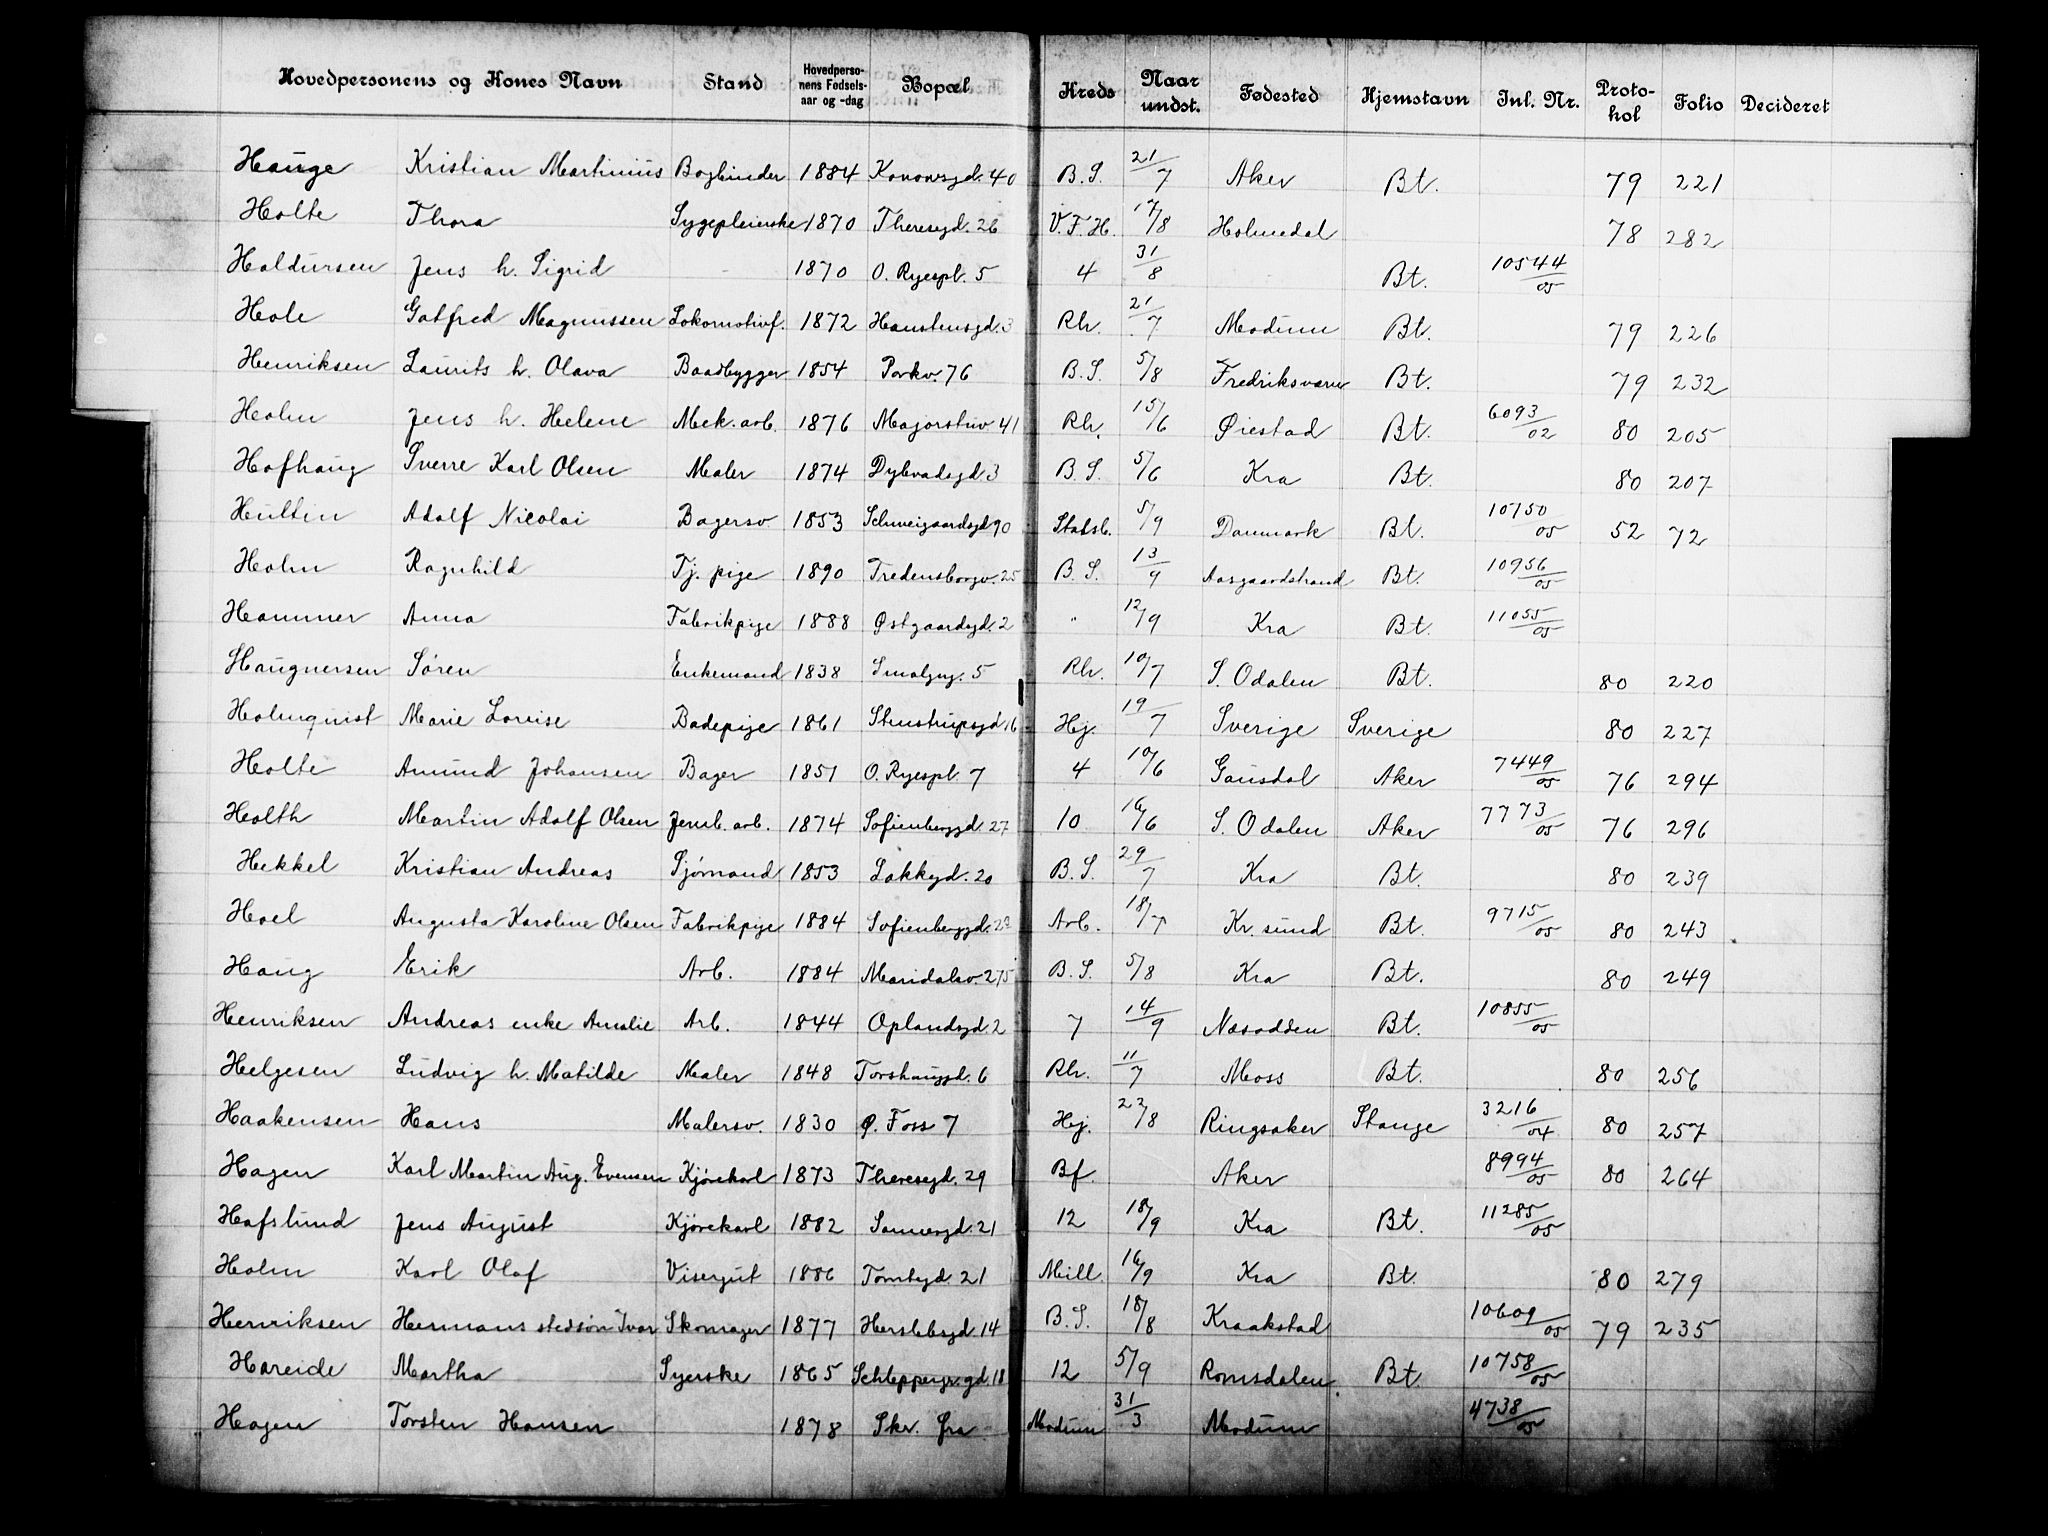 Hovedpersonens og Kones Navn Stand Hovedpersonens Fødselsaar og -dag Bopæl Kreds Naar undst. Fødested Hjemstavn Inl. Nr. Protokol Folio Decideret
Hauge Kristian Martinius Bogbinder 1884 Konowsgd. 40 B.S. 21/7 Aker Bt. 79 221
Holte Thora Sygepleierske 1870 Theresgd. 26 V.F.H. 17/8 Holmedal 78 282
Haldursen Jens h. Sigrid 1870 O. Ryespl. 5 4 31/8 Bt. 10544/05
Hole Gotfred Magnussen Lokomotivf. 1872 Haustensgd. 3 Rh. 21/7 Modum Bt. 79 226
Henriksen Laurits h. Olava Baadbygger 1854 Parkv. 76 B.S. 5/8 Fredriksværn Bt. 79 232
Holm Jens h. Helene Mek. arb. 1876 Majorstuv 41 Rh. 15/6 Øiestad Bt. 6093/02 80 205
Hofhaug Sverre Karl Olsen Maler 1874 Dybvadsgd 3 B.S. 5/6 Kra Bt. 80 207
Hultin Adolf Nicolai Bagersv. 1853 Schweigaardsgd 90 Statsb. 5/9 Danmark Bt. 10750/05 52 72
Holm Ragnhild Tj. pige 1890 Fredensborgv. 25 B.S. 13/9 Aasgaardstrand Bt. 10956/05
Hammer Anna Fabrikpige 1888 Østgaardsgd. 2 " 12/9 Kra Bt. 11055/05
Haugnersen Søren Enkemand 1838 Smalgng. 5 Rh. 10/7 S. Odalen Bt. 80 220
Holmquist Marie Lovise Badepige 1861 Stenstrupsgd 16 Hj. 19/7 Sverige Sverige 80 227
Holte Amund Johansen Bager 1851 O. Ryespl. 7 4 10/6 Gausdal Aker 7449/05 76 294
Holth Martin Adolf Olsen Jernb. arb. 1874 Sofienberggd. 27 10 16/6 S. Odalen Aker 7773/05 76 296
Hekkel Kristian Andreas Sjømand 1853 Lakkegd. 20 B.S. 29/7 Kra Bt. 80 239
Hoel Augusta Karoline Olsen Fabrikpige 1884 Sofienberggd. Arb. 18/7 Kr. sund Bt. 9715/05 80 243
Haug Erik Arb. 1884 Maridalsv. 275 B.S. 5/8 Kra Bt. 80 249
Henriksen Andreas enke Amalie Arb. 1844 Oplandsgd. 2 7 14/9 Nesodden Bt. 10855/05
Helgesen Ludvig h. Matilde Maler 1848 Torshauggd. 6 Rh. 11/7 Moss Bt. 80 256
Haakensen Hans Malersv. 1830 Ø. Foss 7 Hj. 22/8 Ringsaker Stange 3216/04 80 257
Hagen Karl Martin Aug. Evensen Kjørekarl 1873 Theresegd. 29 Bf. Aker 8994/05 80 264
Hafslund Jens August Kjørekarl 1882 Sannergd. 21 12 18/9 Kra Bt. 11285/05
Holm Karl Olaf Visergut 1886 Tomtegd. 21 Mill. 16/9 Kra Bt. 80 279
Henriksen Hermans stedsøn Ivar Skomager 1877 Herslebsgd. 14 B.S. 18/8 Kraakstad 10609/05 79 235
Hareide Martha Syerske 1865 Schleppegr.gd. 18 12 5/9 Romsdalen Bt. 10758/05
Hagen Torsten Hansen 1878 Skr. fra Modum 31/3 Modum 4738/05